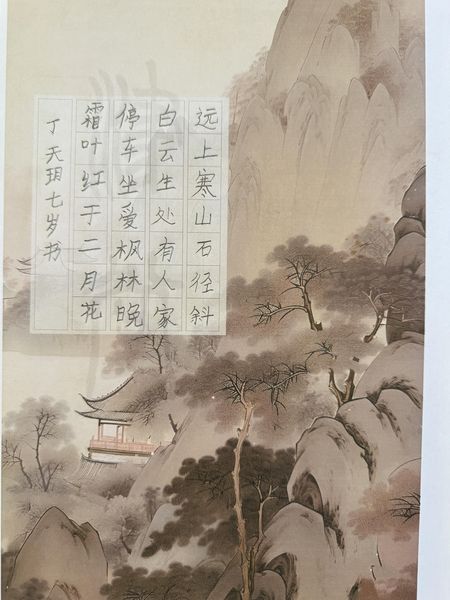 远上寒山石径斜
白云生处有人家
停车坐爱枫林晚
霜叶红于二月花
丁天玥七岁书